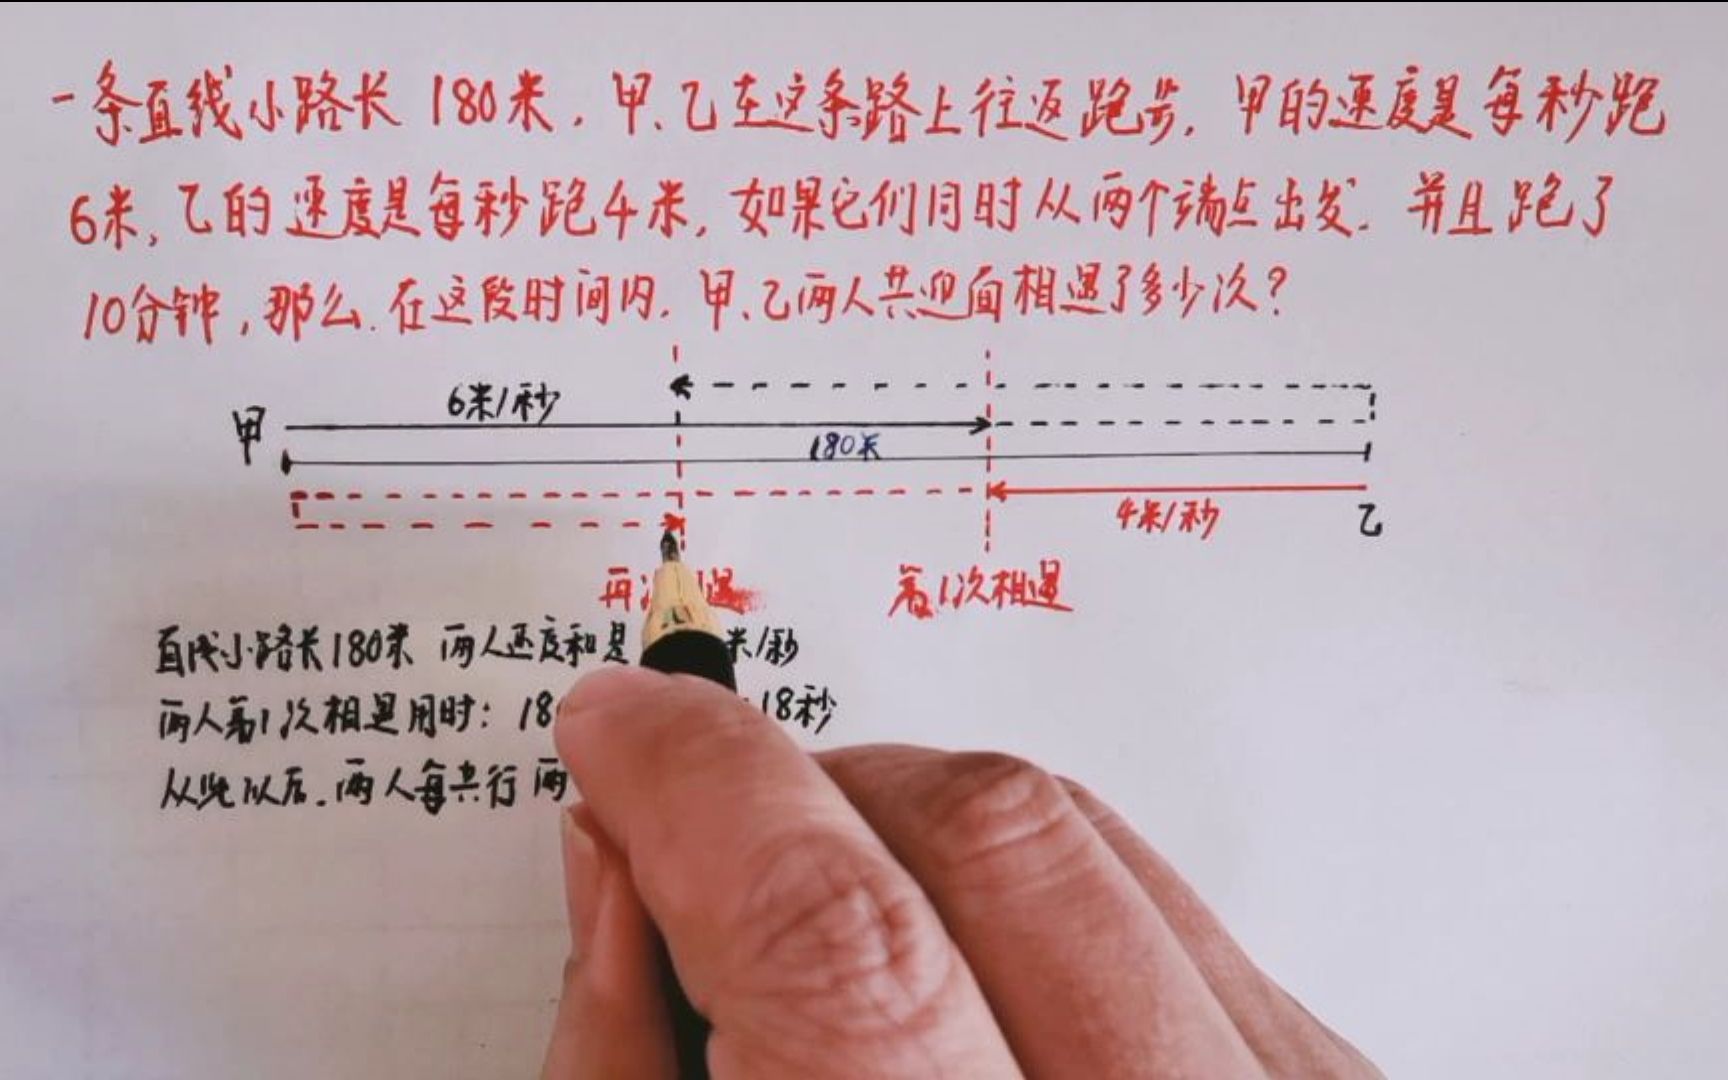 一条直线小路长180米，甲、乙在这条路上往返跑步，甲的速度是每秒跑
6米，乙的速度是每秒跑4米，如果它们同时从两个端点出发，并且跑了
10分钟，那么，在这段时间内，甲、乙两人共迎面相遇了多少次？
6米/秒
甲
180米
4米/秒
乙
再 遇
第1次相遇
直线小路长180米 两人速度和是 米/秒
两人第1次相遇用时：18 18秒
从此以后，两人每共行两